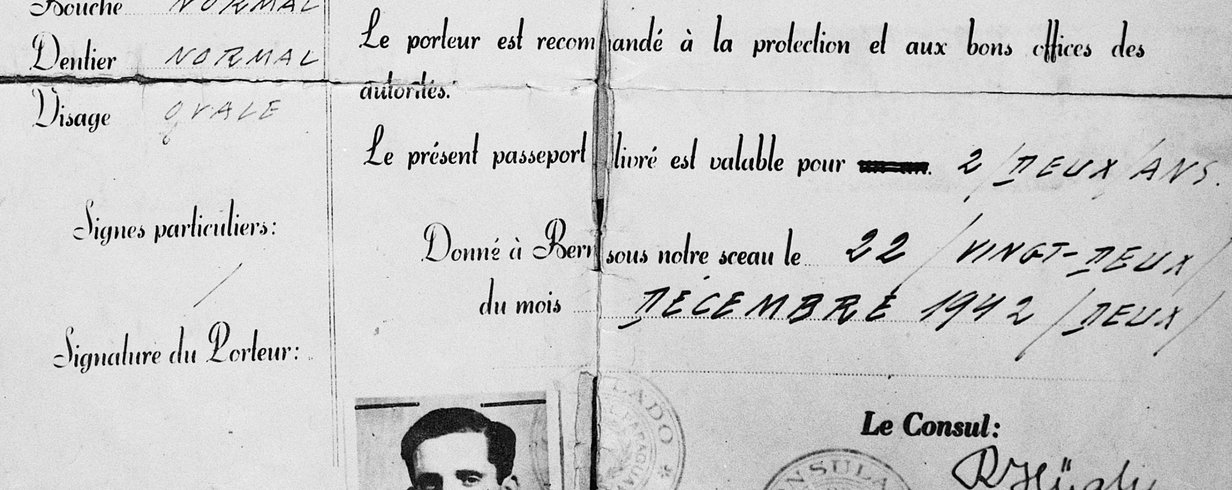 Bouche NORMAL
Dentier NORMAL
Visage OVALE
Signes particuliers:
/
Signature du Porteur:
Le porteur est recommandé à la protection et aux bons offices des
autorités.
Le présent passeport livré est valable pour 2 /DEUX/ ANS.
Donné à Bern sous notre sceau le 22 /VINGT-DEUX/
du mois DÉCEMBRE 1942 /DEUX/
Le Consul: